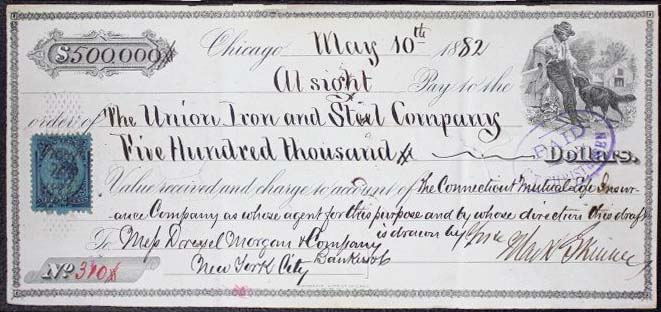 $500,000
Chicago May 10th 1882
At sight Pay to the
order of The Union Iron and Steel Company
Five Hundred thousand Dollars.
PAID
Value received and charge to account of The Connecticut Mutual Life Insur-
ance Company as whose agent for this purpose and by whose direction this draft
is drawn by
Mark Skinner
To Mess Drexel Morgan & Company
Bankers
New York City
No. 310